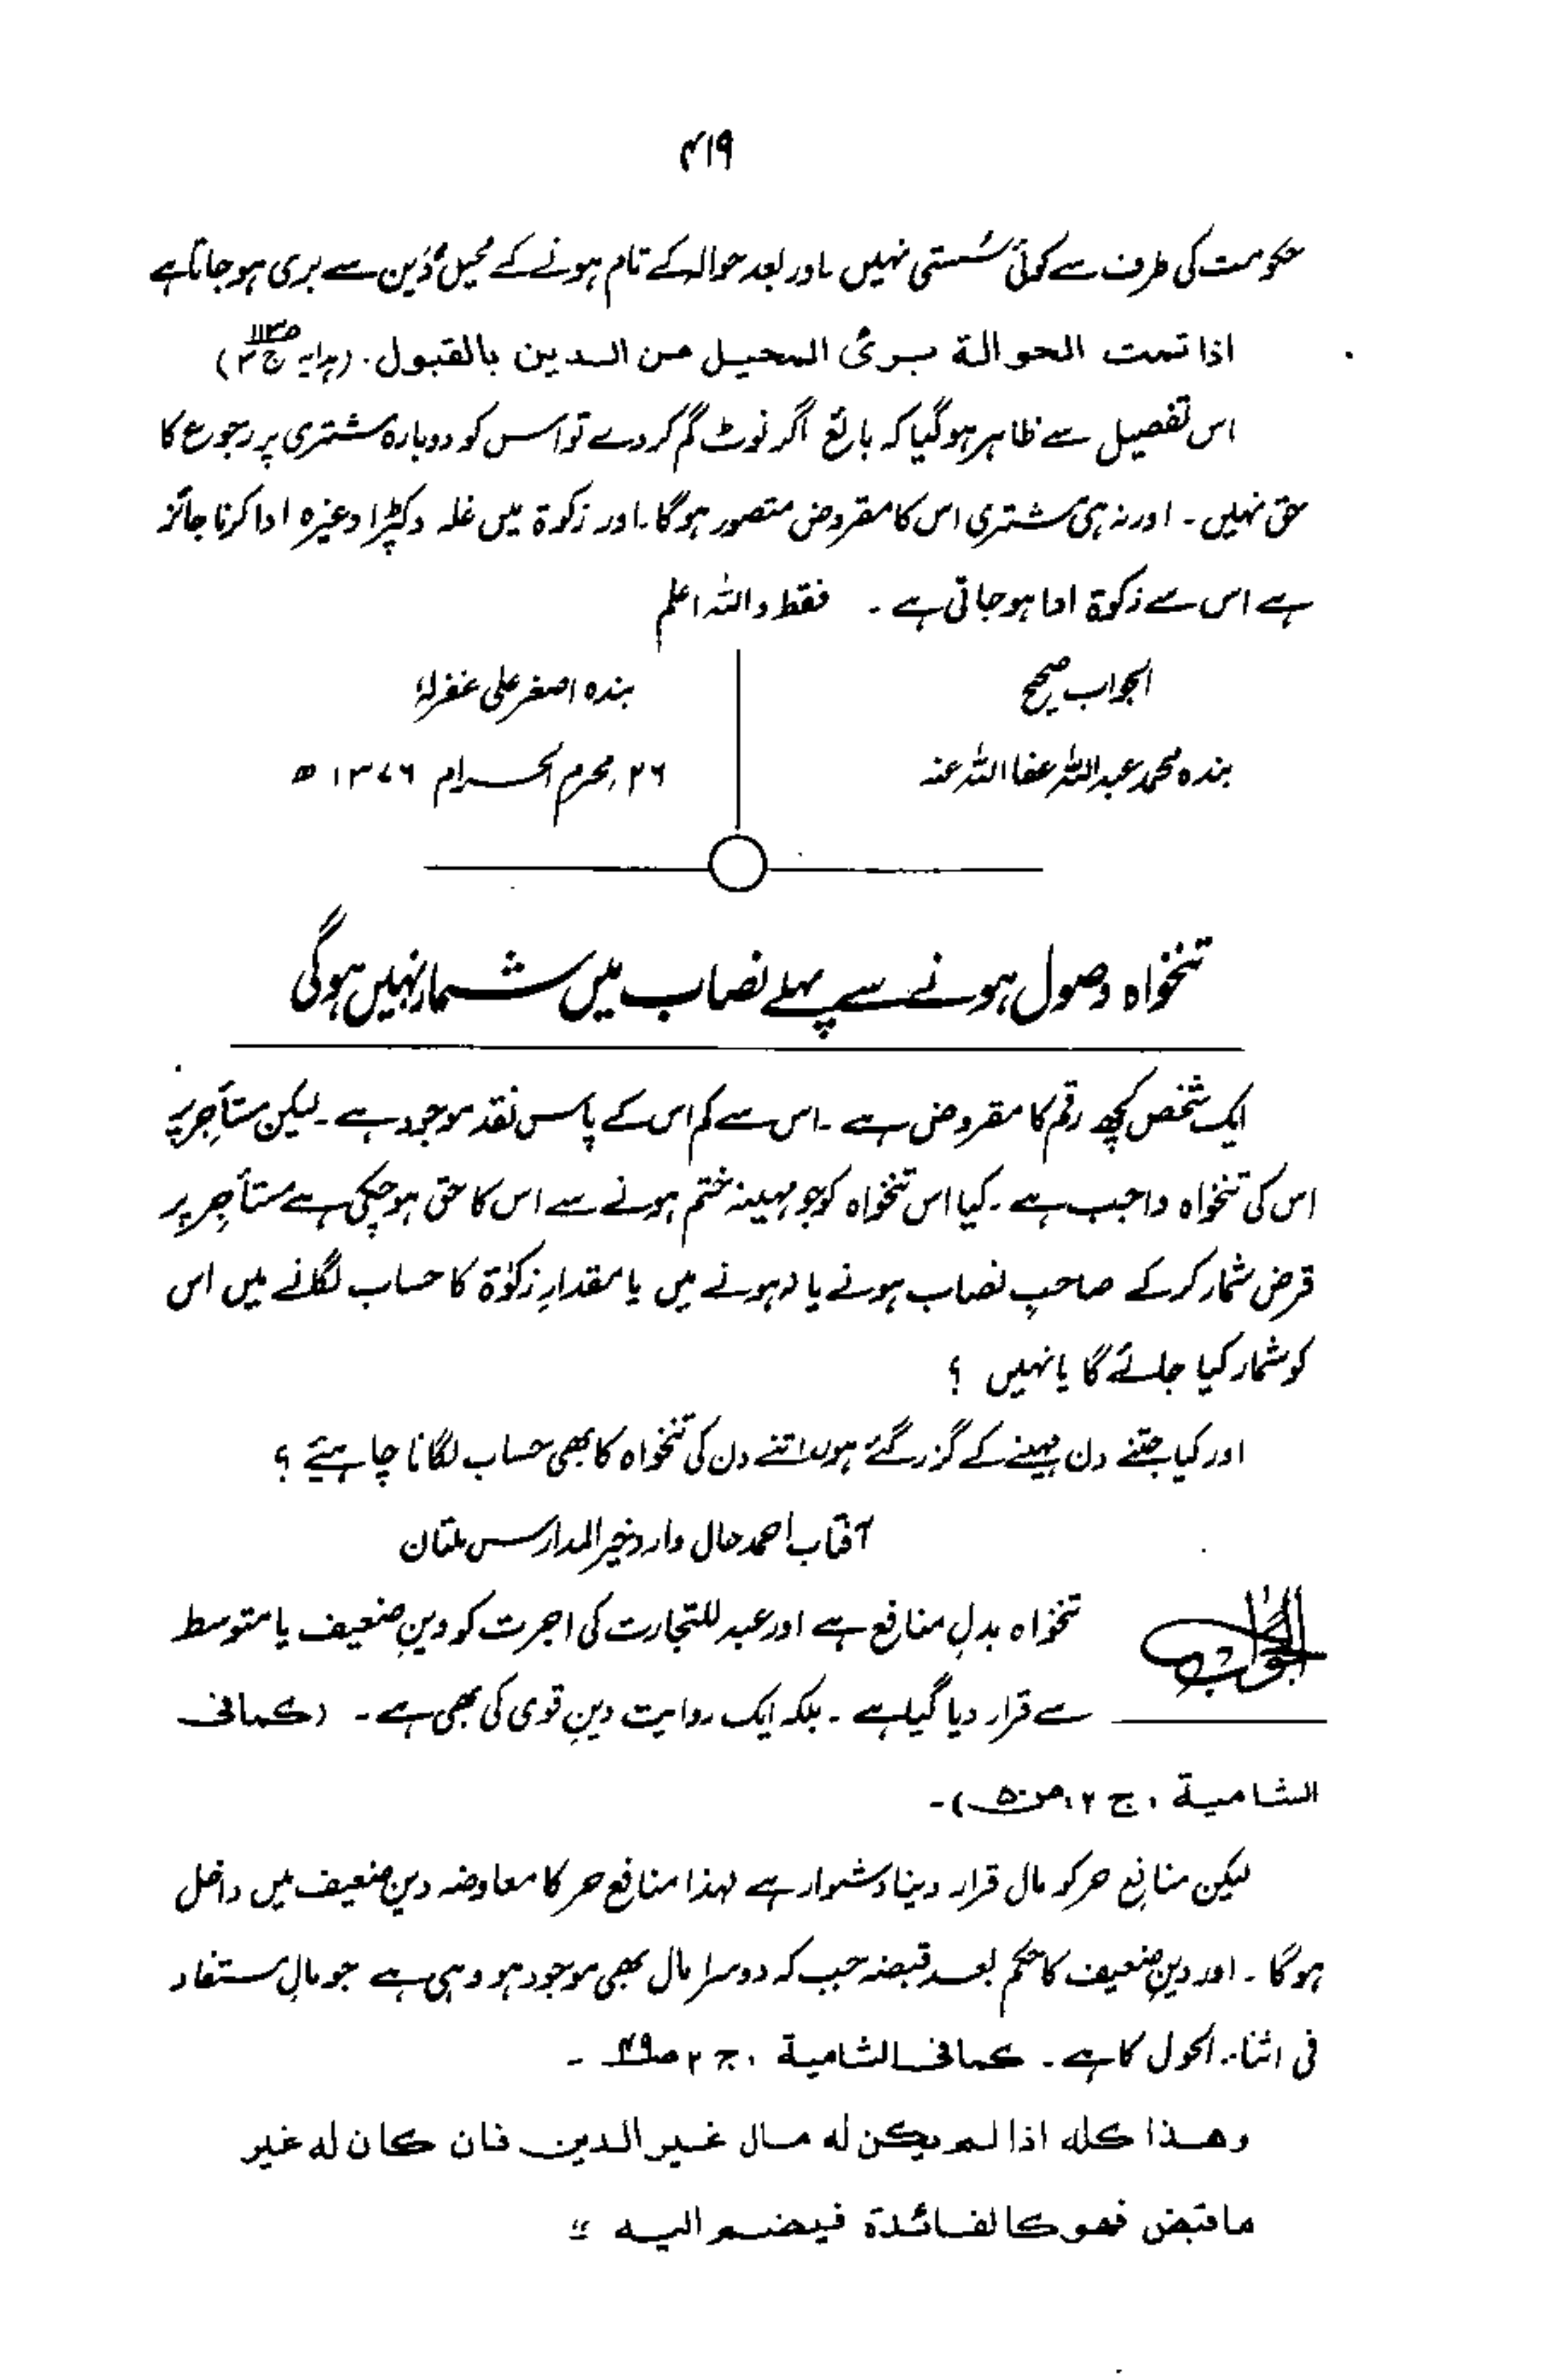 ۴۱۹
حکومت کی طرف سے کوئی سُستی نہیں ۔اور بعد حوالہ کے تام ہونے کے محیل دَین سے بری ہو جاتا ہے
اذا تمت الحوالة برئ المحيل من الدين بالقبول ۔ (ہدایہ ج۳ ص۱۱۳)
اس تفصیل سے ظاہر ہوگیا کہ بائع اگر نوٹ گم کر دے تو اس کو دوبارہ مشتری پر رجوع کا
حق نہیں ۔ اور نہ ہی مشتری اس کا مقروض متصور ہوگا ۔اور زکوۃ میں غلہ وکپڑا وغیرہ ادا کرنا جائز
ہے اس سے زکوۃ ادا ہو جاتی ہے ۔ فقط واللہ اعلم
الجواب صحیح
بندہ محمد عبداللہ عفا اللہ عنہ
بندہ اصغر علی غفرلہٗ
۲۶ ؍محرم الحرام ۱۳۷۶ ھ
تنخواہ وصول ہونے سے پہلے نصاب میں شمار نہیں ہوگی
ایک شخص کچھ رقم کا مقروض ہے ۔اس سے کم اس کے پاس نقد موجود ہے ۔لیکن مستأجر پر
اس کی تنخواہ واجب ہے ۔ کیا اس تنخواہ کو جو مہینہ ختم ہونے سے اس کا حق ہو چکی ہے مستأجِر پر
قرض شمار کرکے صاحبِ نصاب ہونے یا نہ ہونے میں یا مقدارِ زکوٰۃ کا حساب لگانے میں اس
کو شمار کیا جائے گا یا نہیں ؟
اور کیا جتنے دن مہینے کے گزر گئے ہوں اتنے دن کی تنخواہ کا بھی حساب لگانا چاہیئے ؟
آفتاب احمد حال وارد خیر المدارس ملتان
الجواب
تنخواہ بدلِ منافع ہے اور عبد للتجارت کی اجرت کو دینِ ضعیف یا متوسط
سے قرار دیا گیا ہے ۔ بلکہ ایک روایت دینِ قوی کی بھی ہے ۔ (کما فی
الشامية ، ج ۲، ص۵۰)۔
لیکن منافعِ حر کو مال قرار دینا دشوار ہے لہذا منافع حر کا معاوضہ دینِ ضعیف میں داخل
ہوگا ۔ اور دینِ ضعیف کا حکم بعد قبضہ جب کہ دوسرا مال بھی موجود ہو وہی ہے جو مالِ مستفاد
فی اثناء الحول کا ہے ۔ کما فی الشامية ، ج ۲ ص۴۹ ۔
وهذا كله اذا لم يكن له مال غير الدين فان كان له غير
ما قبض فهو كالفائدة فيضم اليه ״